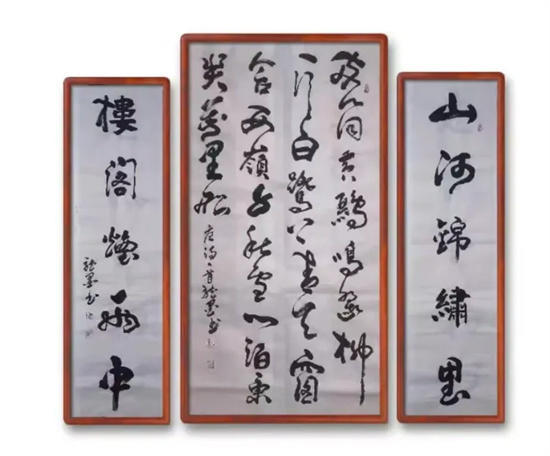 山河錦繡里
兩個黃鸝鳴翠柳
一行白鷺上青天窗
含西嶺千秋雪门泊東
吳萬里船
唐诗一首墨书
樓阁煙雨中
墨书